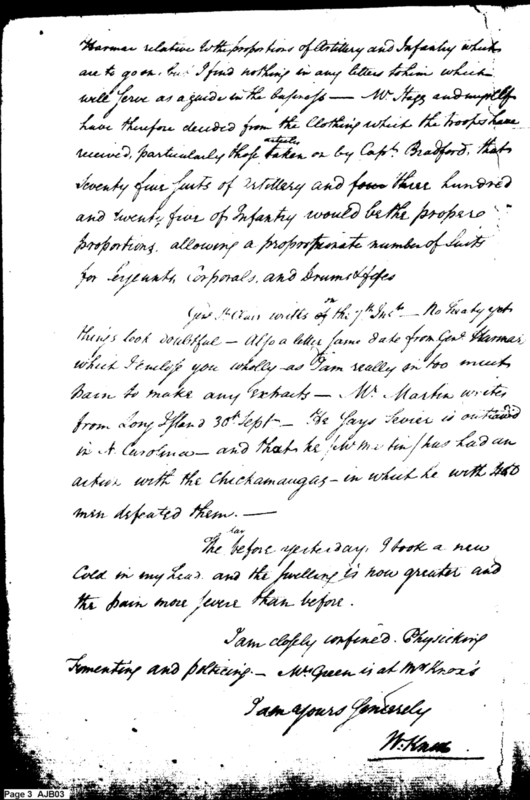 Harmar relative to the proportions of Artillery and Infantry which
are to go on, but I find nothing in any letters to him which
will serve as a guide in the business — Mr. Stagg and myself
have therefore decided from the Clothing which the troops have
received, particularly those articles taken on by Capt. Bradford, that
Seventy five suits of Artillery and four three hundred
and twenty five of Infantry would be the proper
proportions, allowing a proportionate number of Suits
for Sergeants, Corporals, and Drums & fifes
Genl St Clair writes on the 7th Inst — No Treaty yet
things look doubtful — Also a letter same date from Genl Harmar
which I enclose you wholly as I am really in too much
pain to make any Extracts — Mr. Martin writes
from Long Island 30th Sept — He says Sevier is outlawd
in N. Carolina — and that he (Mr Martin) has had an
action with the Chickamaugas — in which he with 460
men defeated them. —
The day before yesterday, I took a new
Cold in my head and the swelling is now greater and
the pain more severe than before.
I am closely confined. Physicking
Fomenting and polticing. — Mrs Green is at Mrs Knox's
I am yours Sincerely
W. Knox
Page 3 AJB03